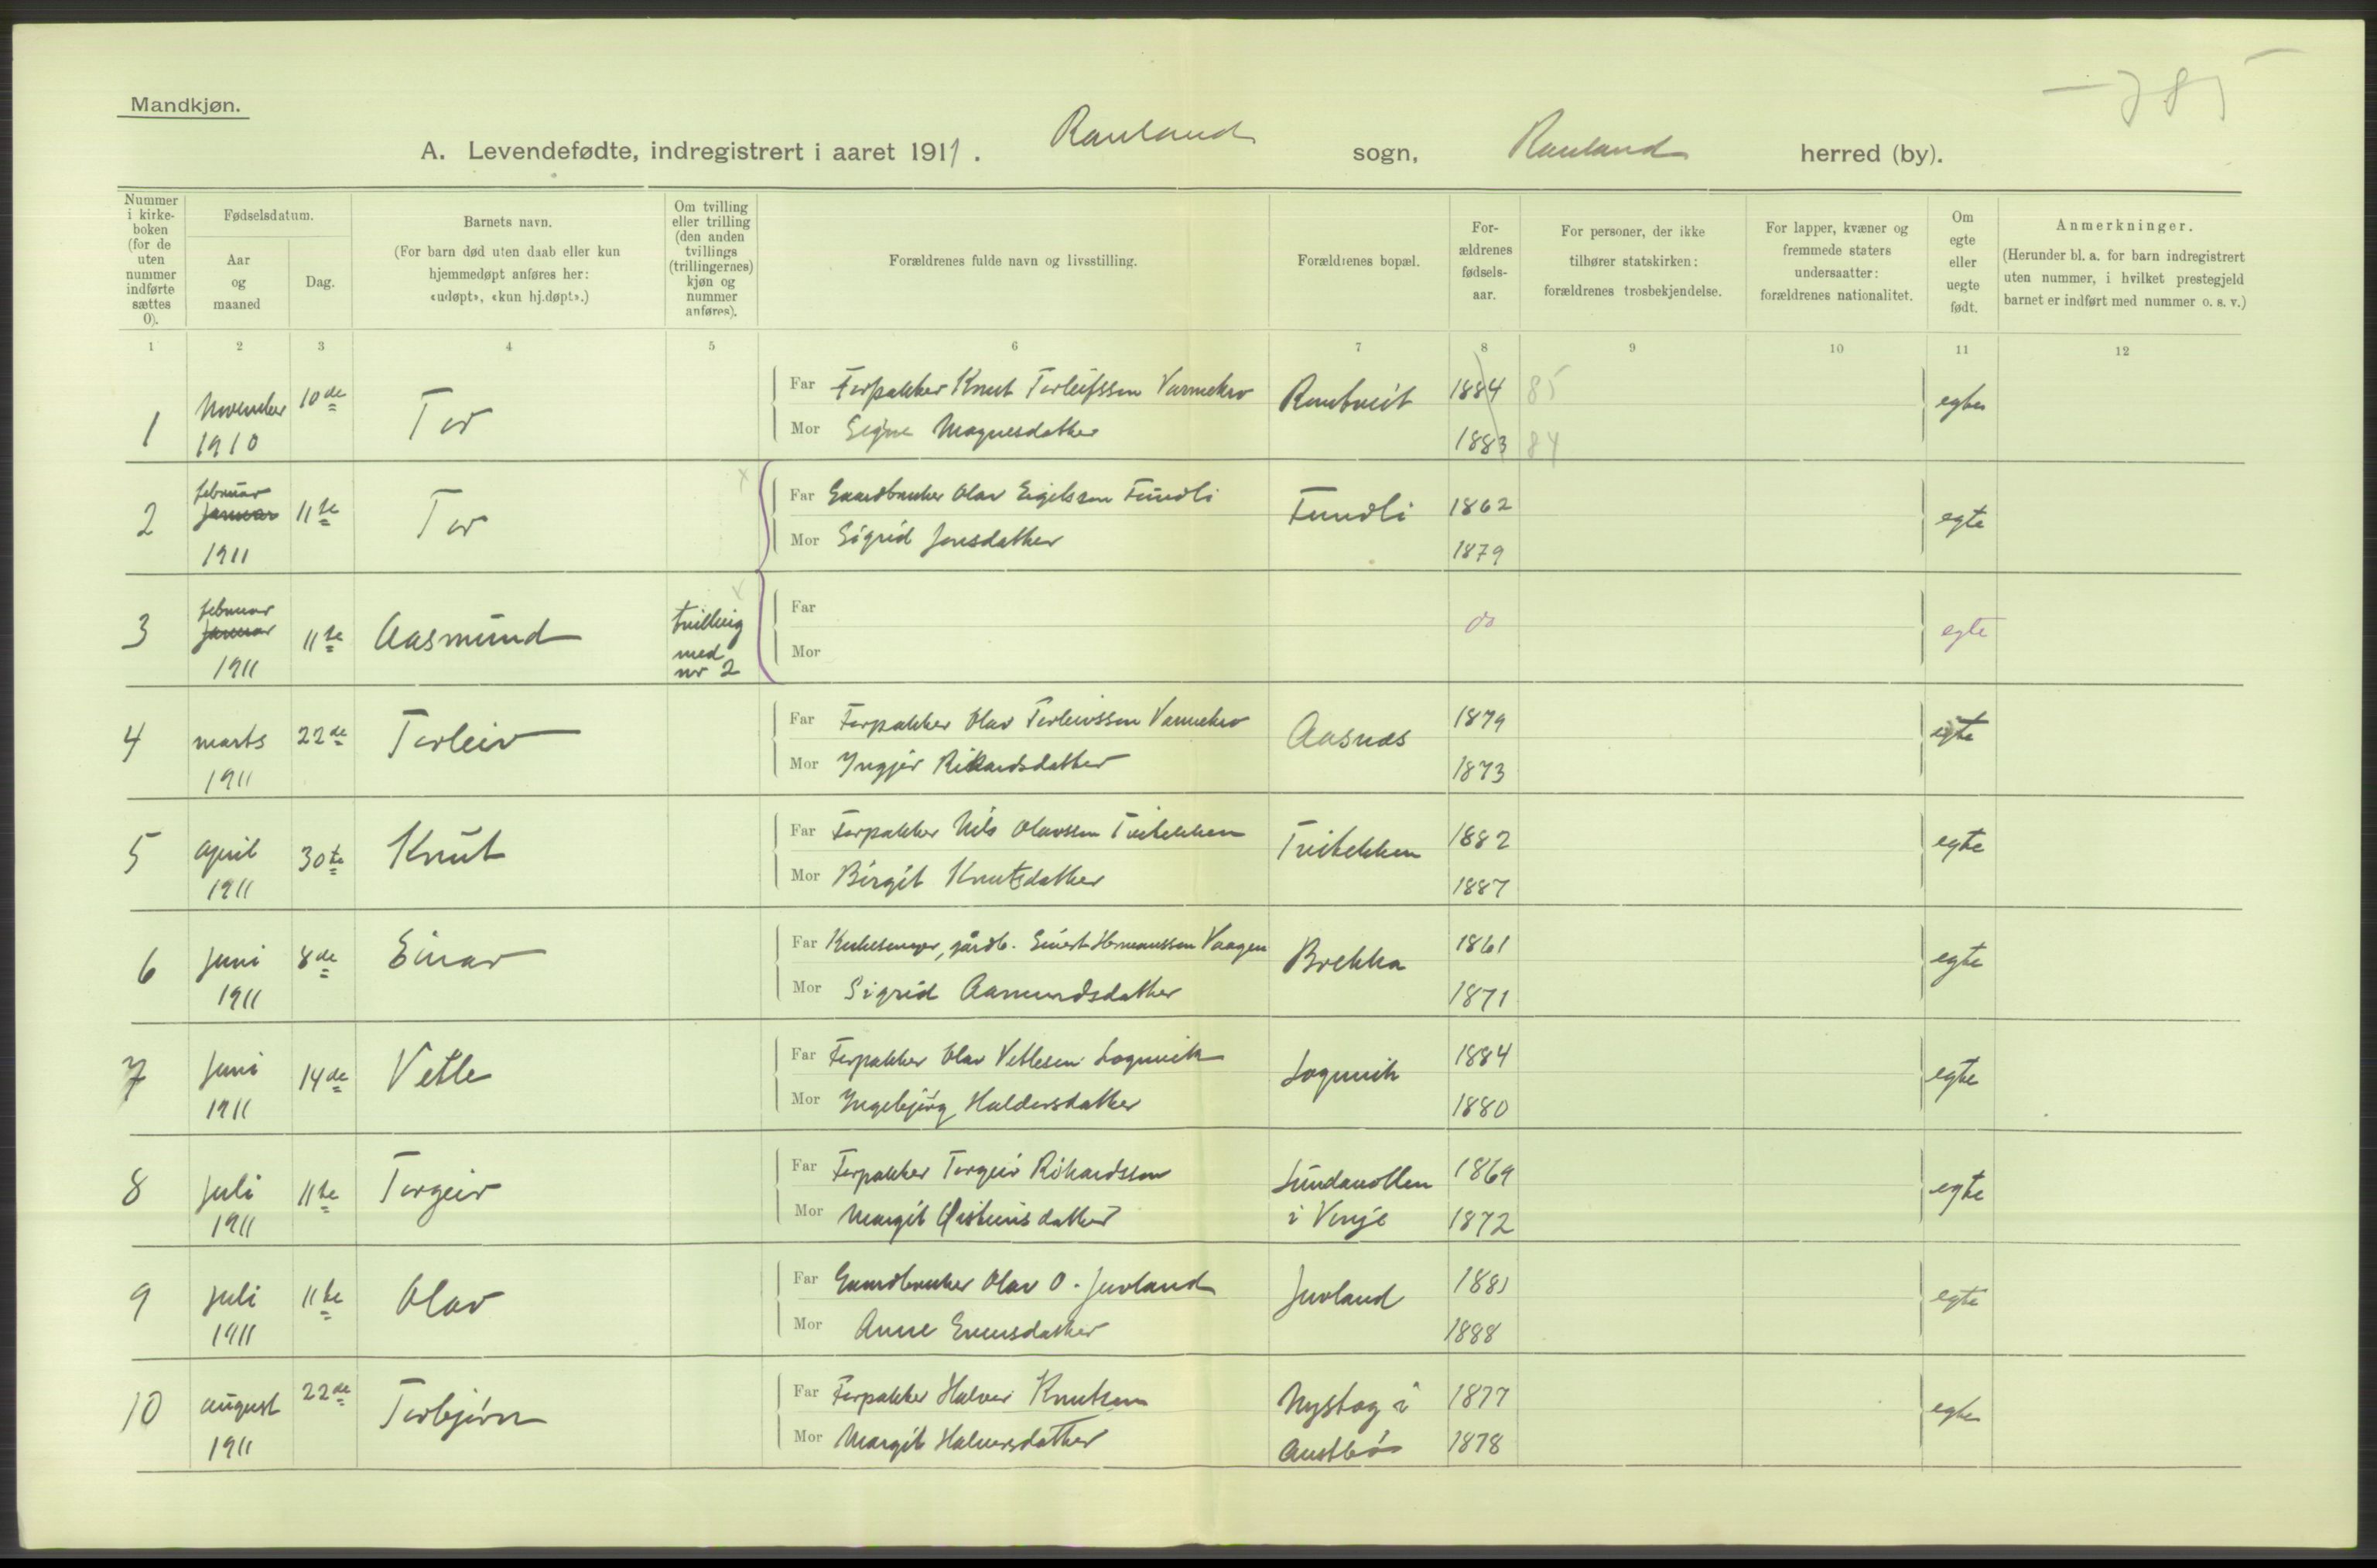 Mandkjøn.
— 785
A. Levendefødte, indregistrert i aaret 1911. Rauland sogn, Rauland herred (by).
Nummer i kirke-boken (for de uten nummer indførte sættes 0).
Fødselsdatum.
Aar og maaned
Dag.
Barnets navn.
(For barn død uten daab eller kun hjemmedøpt anføres her: «udøpt», «kun hj.døpt».)
Om tvilling eller trilling (den anden tvillings (trillingernes) kjøn og nummer anføres).
Forældrenes fulde navn og livsstilling.
Forældrenes bopæl.
For-ældrenes fødsels-aar.
For personer, der ikke tilhører statskirken: forældrenes trosbekjendelse.
For lapper, kvæner og fremmede staters undersaatter: forældrenes nationalitet.
Om egte eller uegte født.
Anmerkninger.
(Herunder bl. a. for barn indregistrert uten nummer, i hvilket prestegjeld barnet er indført med nummer o. s. v.)
1 2 3 4 5 6 7 8 9 10 11 12
1 November 1910 10de Tor
Far Forpakter Knut Torleifssen Raubveit 1884 85 egte
Mor Signe Magnesdatter 1883 84
2 februar januar 1911 11te Tor
Far Gaardbruker Olav Eigilssen Fundli Fundli 1862 egte
Mor Sigrid Jonsdatter 1879
3 februar januar 1911 11te Aasmund tvilling med nr 2
Far do egte
Mor
4 marts 1911 22de Torleiv
Far Forpakter Olav Torleivssen Aasnes 1879 egte
Mor Ingjer Rikardsdatter 1873
5 april 1911 30te Knut
Far Forpakter Nils Olavssen Tveitekken Tveitekken 1882 egte
Mor Birgit Knutsdatter 1887
6 juni 1911 8de Einar
Far Kirkesanger, gårdb. Sivert Hermanssen Vaagen Brekka 1861 egte
Mor Sigrid Aamundsdatter 1871
7 juni 1911 14de Vetle
Far Forpakter Olav Vetlesen Lognvik Lognvik 1884 egte
Mor Ingebjørg Haldorsdatter 1880
8 juli 1911 11te Torgeir
Far Forpakter Torgeir Rikardssen Lundevollen 1869 egte
Mor Margit Øisteinsdatter i Vinje 1872
9 juli 1911 11te Olav
Far Gaardbruker Olav O. Juvland Juvland 1881 egte
Mor Anne Evensdatter 1888
10 august 1911 22de Torbjørn
Far Forpakter Halvor Knutsen Nystog i 1877 egte
Mor Margit Halvorsdatter Austbø 1878